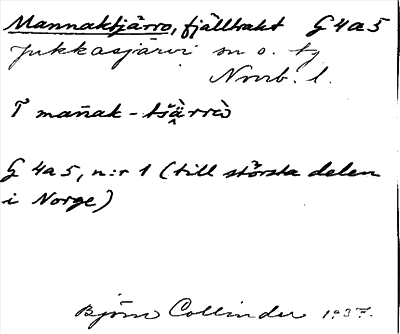 Mannaktjårro, fjälltrakt G 4a5
Jukkasjärvi sn o. tg
Norrb. l.
T mañak-tšårrò
G 4a5, n:r 1 (till största delen
i Norge)
Björn Collinder 1937.